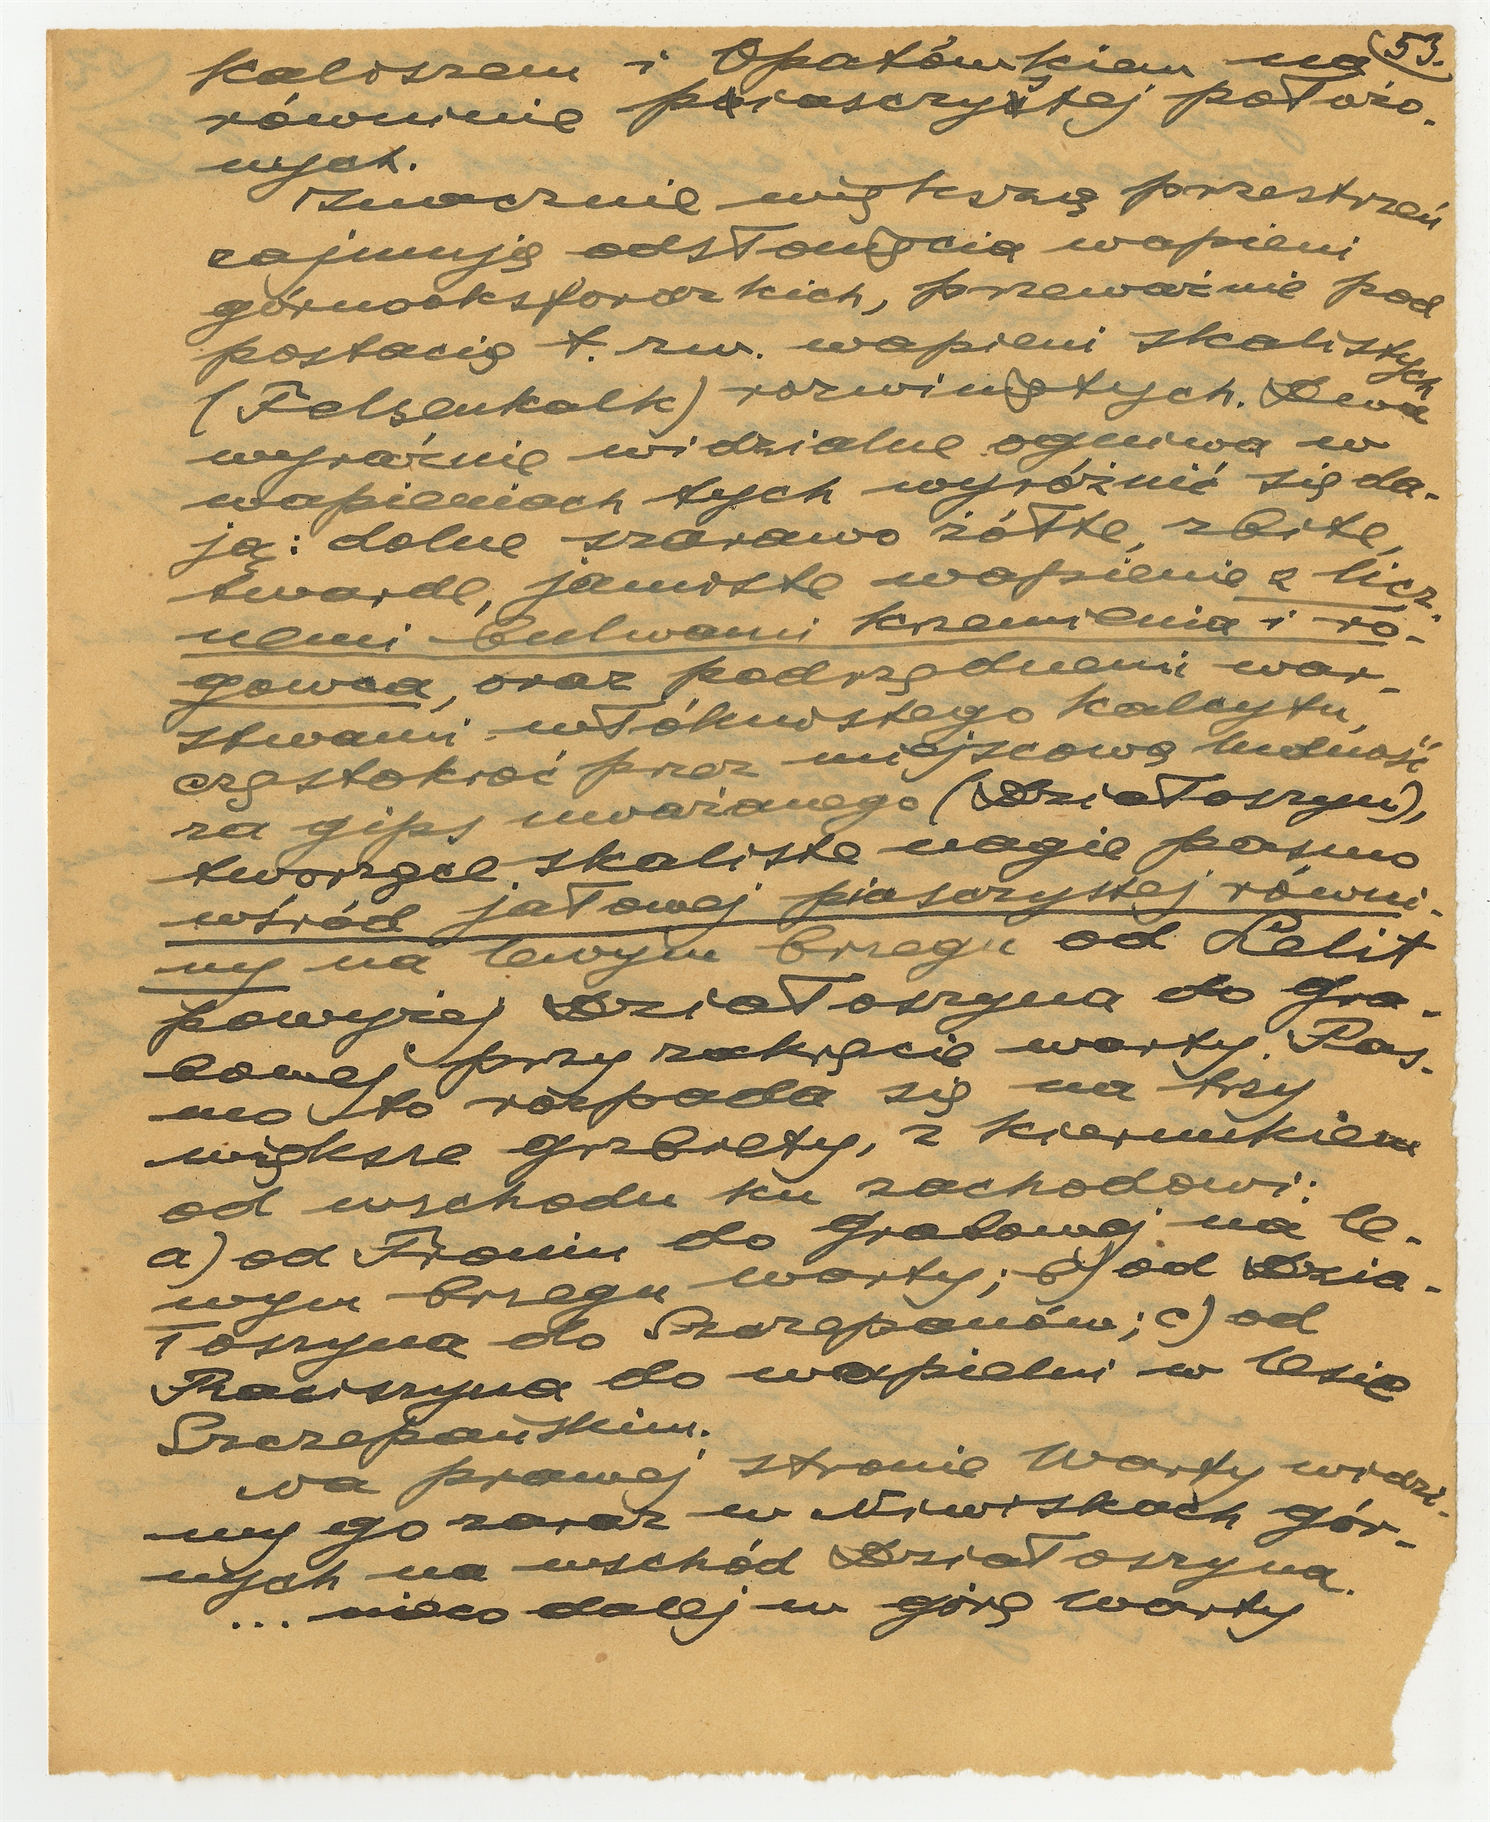 53.
Kaliszem i Opatówkiem na
równinie piasczystej położo-
nych.
Znacznie większą przestrzeń
zajmują odsłonięcia wapieni
górnooksfordzkich, przeważnie pod
postacią t. zw. wapieni skalistych
(Felsenkalk) rozwiniętych. Dwa
wyraźnie widzialne ogniwa w
wapieniach tych wyróżnić się da-
ją: dolne szarawo żółte, zbite,
twarde, jamiste wapienie z licz-
nemi bulwami krzemienia i ro-
gowca, oraz podrzędnemi war-
stwami włóknistego kalcytu,
częstokroć przez miejscową ludność
za gips uważanego (Działoszyn),
tworzące skaliste nagie pasmo
wśród jałowej piasczystej równi-
ny na lewym brzegu od Lelit
powyżej Działoszyna do Gra-
bowej przy zakręcie Warty. Pas-
mo to rozpada się na trzy
większe grzbiety, z kierunkiem
od wschodu ku zachodowi:
a) od Troniu do Grabowej na le-
wym brzegu Warty; b) od Dzia-
łoszyna do Szczepanów; c) od
Raciszyna do wapielni w lesie
Szczepańskim.
Na prawej stronie Warty widzi-
my go zaraz w Niwiskach gór-
nych na wschód Działoszyna.
... nieco dalej w górę Warty